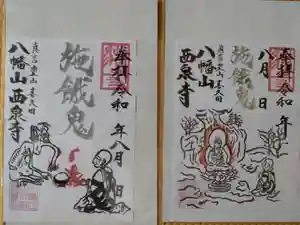 奉拝 令和 年 八月 日
施餓鬼
真言 豊山 喜久田
八幡山 西泉寺
奉拝 令和 年
八月 日
施餓鬼
真言 豊山 喜久田
八幡山
西泉寺